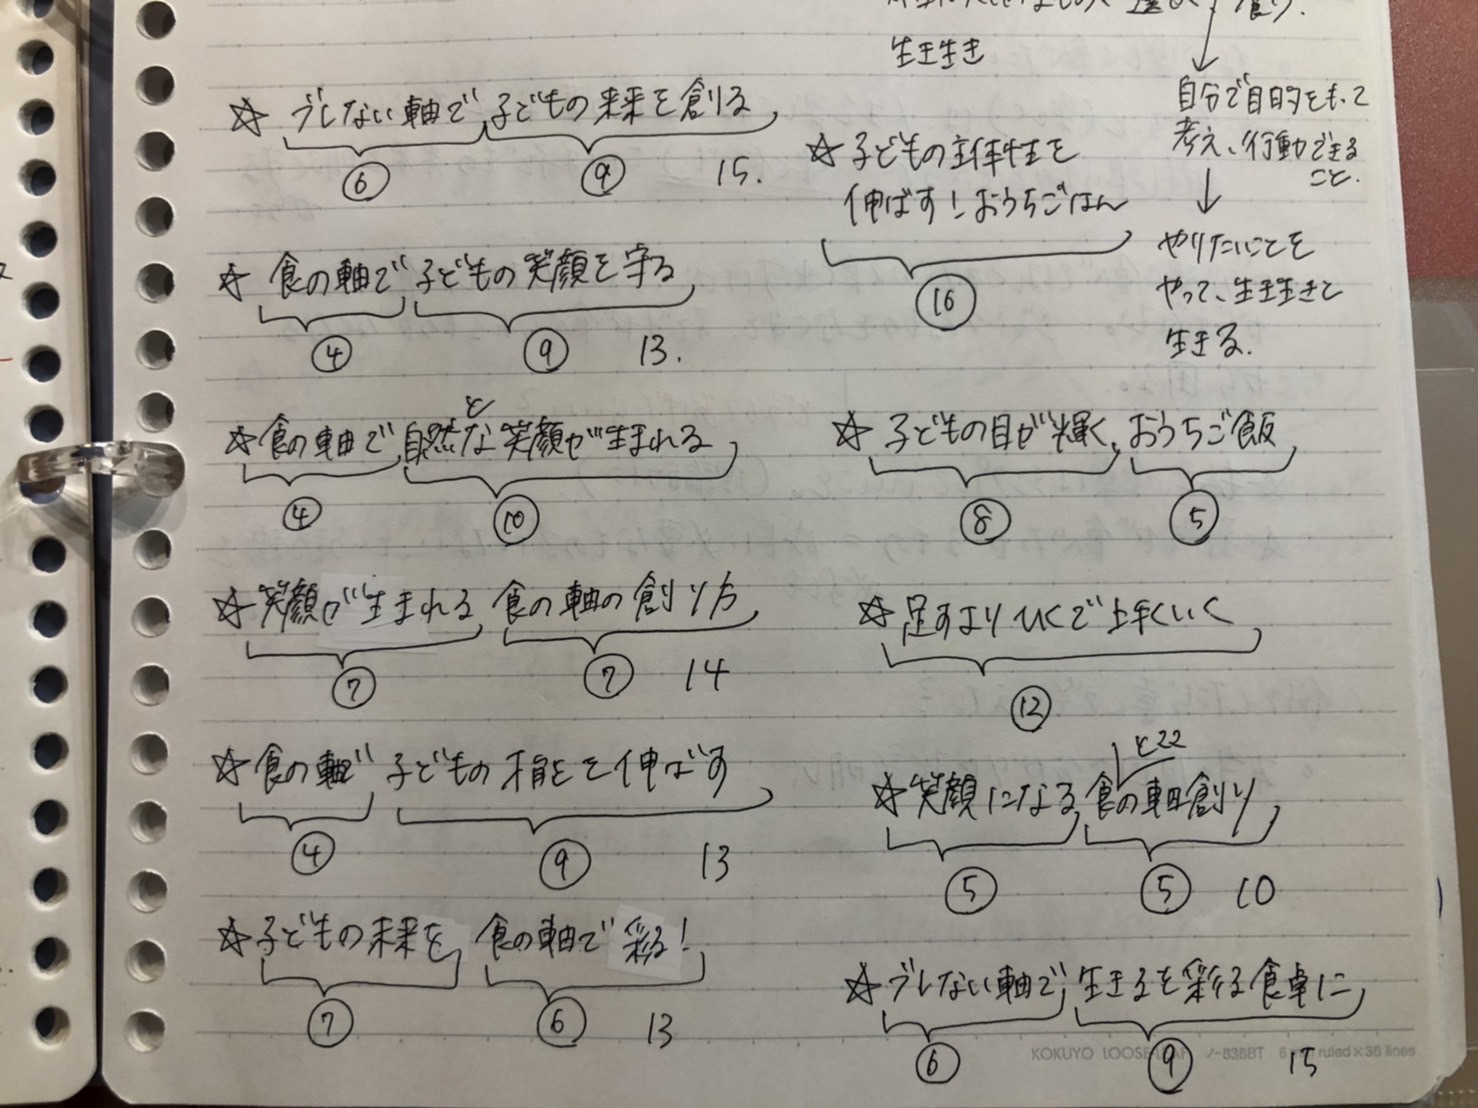 生き生き
☆ ブレない軸で 子どもの未来を創る
⑥ ⑨ 15.
☆ 食の軸で 子どもの笑顔を守る
④ ⑨ 13.
と
☆ 食の軸で 自然な笑顔が生まれる
④ ⑩
☆ 笑顔が生まれる 食の軸の創り方
⑦ ⑦ 14
☆ 食の軸で 子どもの才能を伸ばす
④ ⑨ 13
☆ 子どもの未来を 食の軸で彩る!
⑦ ⑥ 13
自分で目的をもって
考え、行動できる
こと.
↓
やりたいことを
やって、生き生きと
生きる.
☆ 子どもの主体性を
伸ばす!おうちごはん
⑯
☆ 子どもの目が輝く おうちご飯
⑧ ⑤
☆ 足すより ひくで上手くいく
⑫
☆ 笑顔になる 食の軸創り
⑤ ⑤ 10
☆ ブレない軸で 生きるを彩る食卓に
⑥ ⑨ 15
KOKUYO LOOSE-LEAF ノ-836BT 6 mm ruled×36 lines